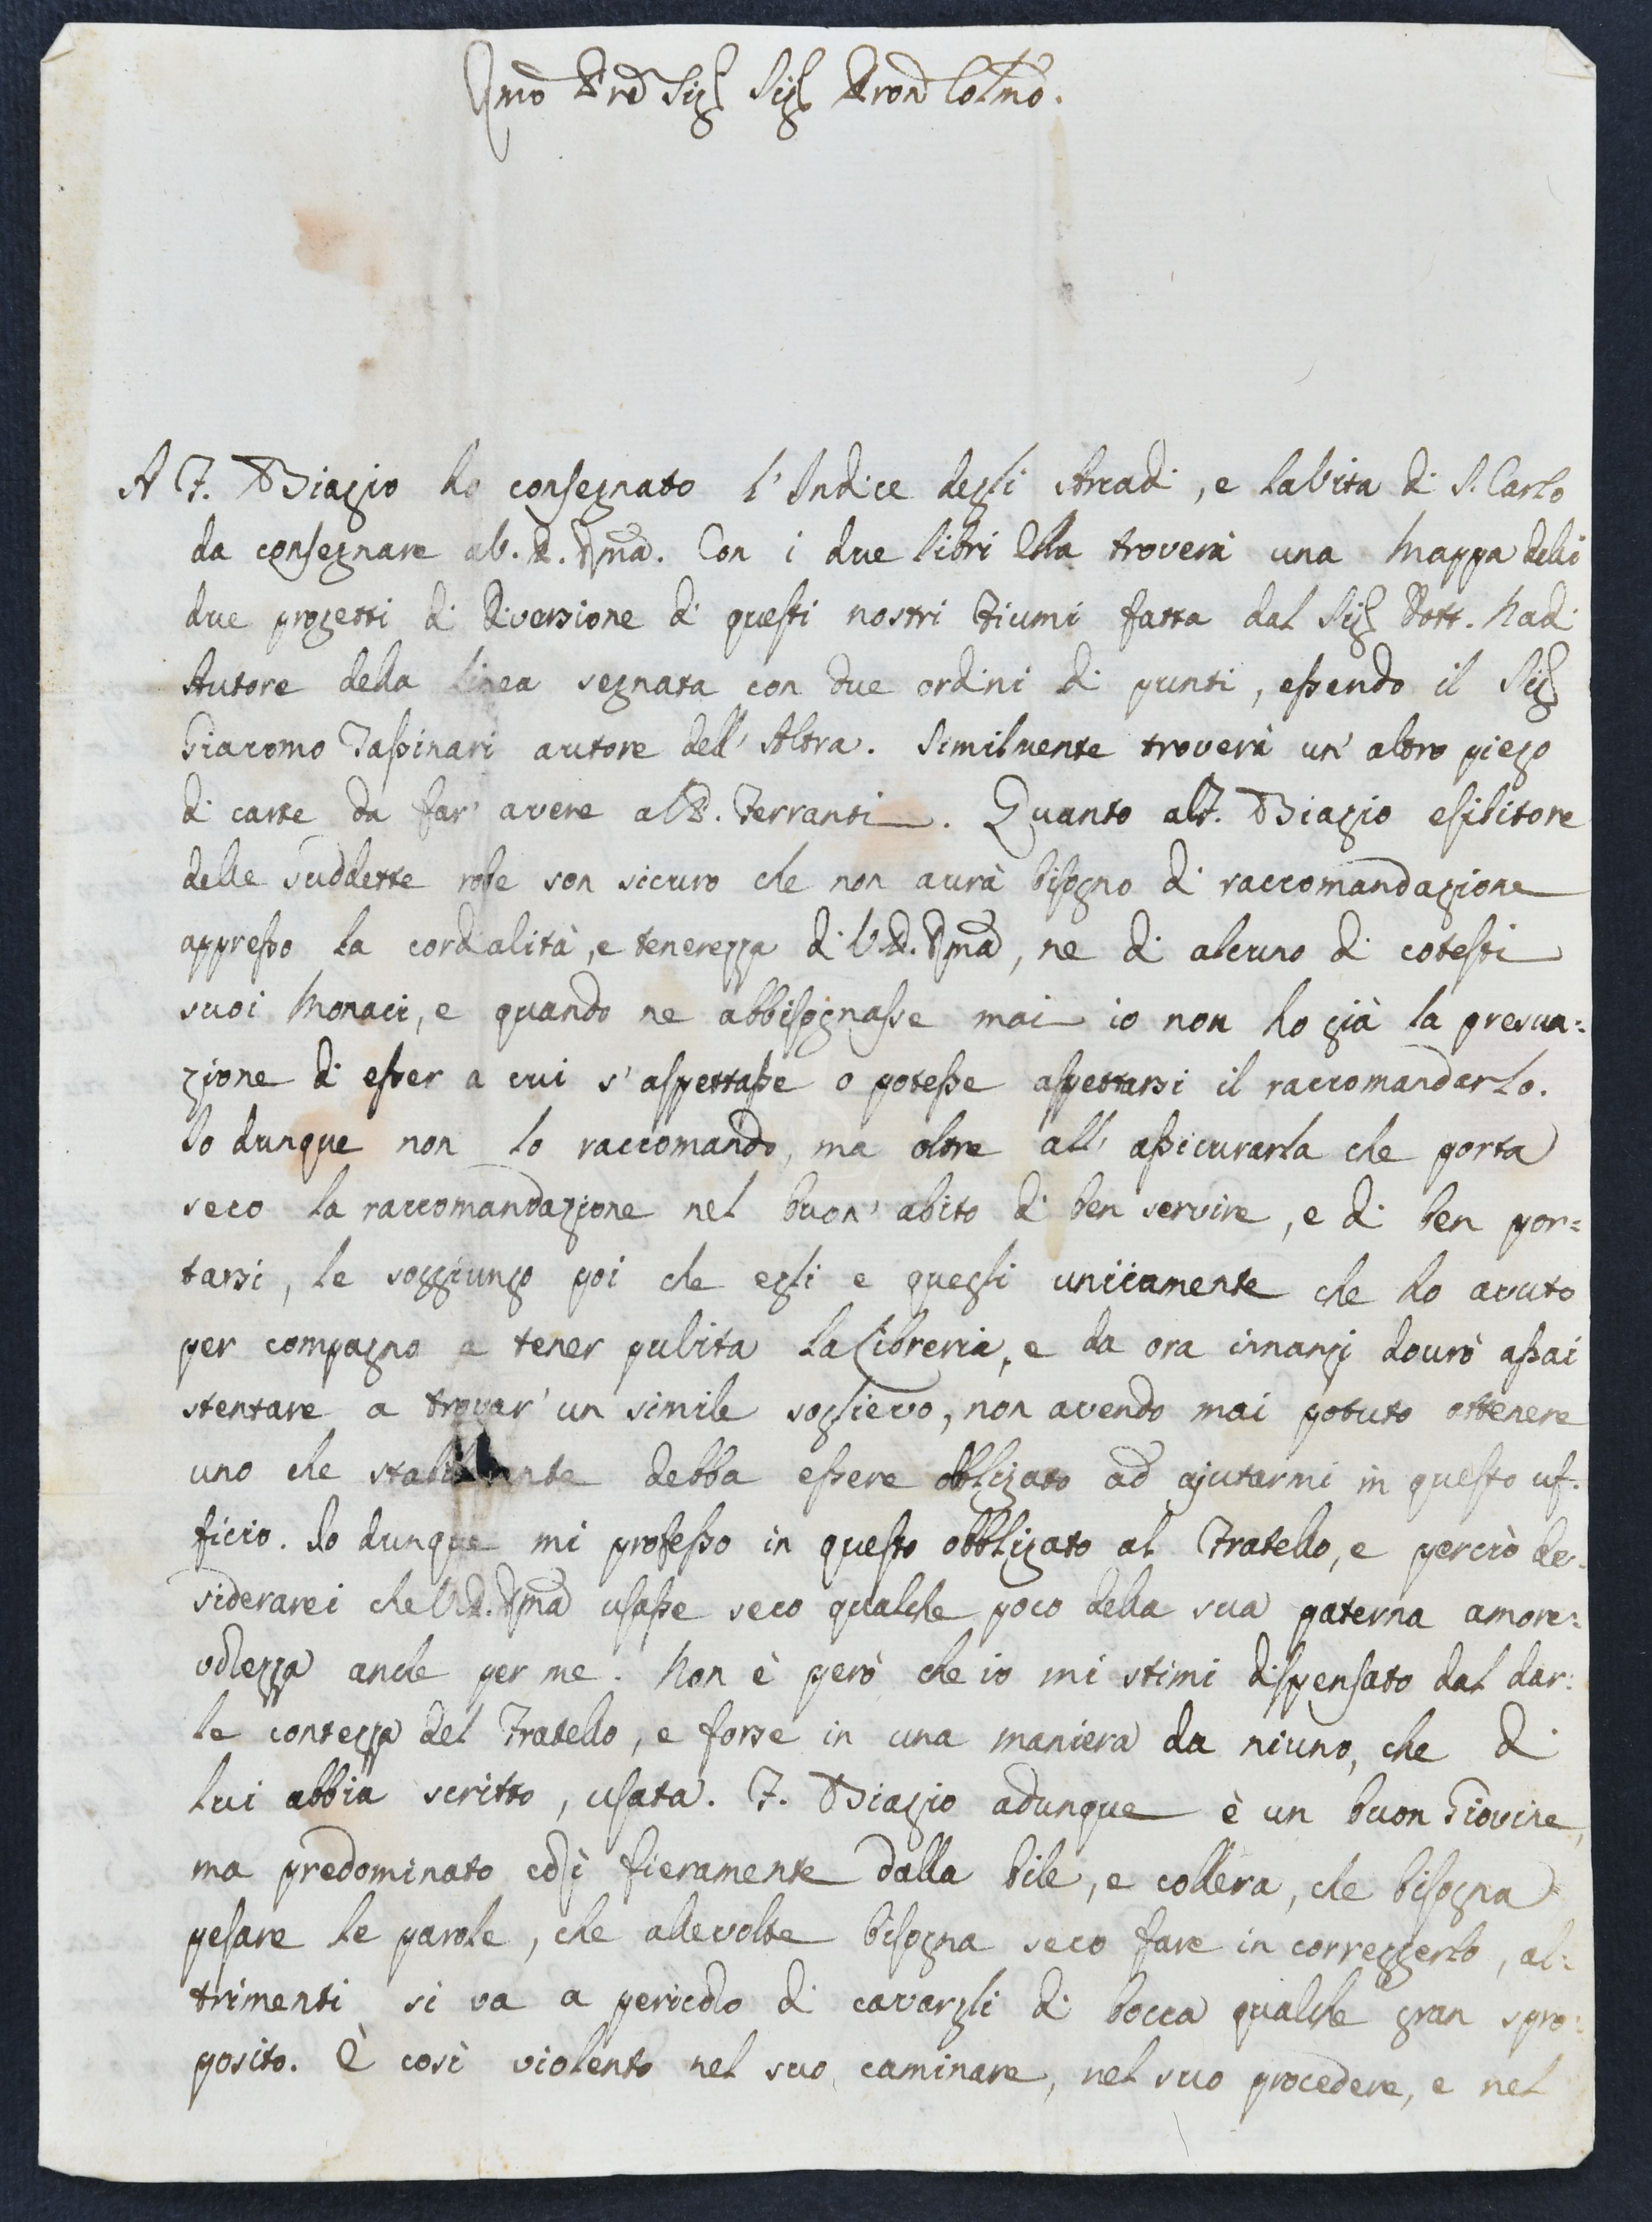 Rmo Pre Sig. Sig. Pron Colmo.
A F. Biagio ho consegnato l'Indice degli Arcadi, e la Vita di S. Carlo
da consegnare a V. P. Rma. Con i due libri Ella troverà una Mappa delli
due progetti di Diversione di questi nostri Fiumi fatta dal Sig. Dott. Nadi
Autore della linea segnata con due ordini di punti, essendo il Sig.
Giacomo Tassinari autore dell'Altra. Similmente troverà un'altro piego
di carte da far'avere al P. Ferranti. Quanto al F. Biagio esibitore
delle suddette robe son sicuro che non avrà bisogno di raccomandazione
appresso la cordialità, e tenerezza di V. P. Rma, ne di alcuno di cotesti
suoi Monaci, e quando ne abbisognasse mai io non ho già la presun:
zione di esser a cui s'aspettasse o potesse aspettarsi il raccomandarlo.
Io dunque non lo raccomando, ma oltre all'assicurarla che porta
seco la raccomandazione nel buon'abito di ben servire, e di ben por=
tarsi, le soggiungo poi che egli e quegli unicamente che ho avuto
per compagno a tener pulita la Libreria, e da ora innanzi dovrò assai
stentare a trovar'un simile soglievo, non avendo mai potuto ottenere
uno che debba essere obbligato ad ajutarmi in questo uf:
ficio. Io dunque mi professo in questo obbligato al Fratello, e perciò de:
siderarei che V. P. Rma usasse seco qualche poco della sua paterna amore:
volezza anche per me. Non è però che io mi stimi dispensato dal dar:
le contezza del Fratello, e forse in una maniera da niuno, che di
lui abbia scritto, usata. F. Biagio adunque è un buon Giovine,
ma predominato così fieramente dalla bile, e collera, che bisogna
pesare le parole, che alle volte bisogna seco fare in correggerlo, al:
trimenti si va a pericolo di cavargli di bocca qualche gran spro:
posito. È così violento nel suo caminare, nel suo procedere, e nel